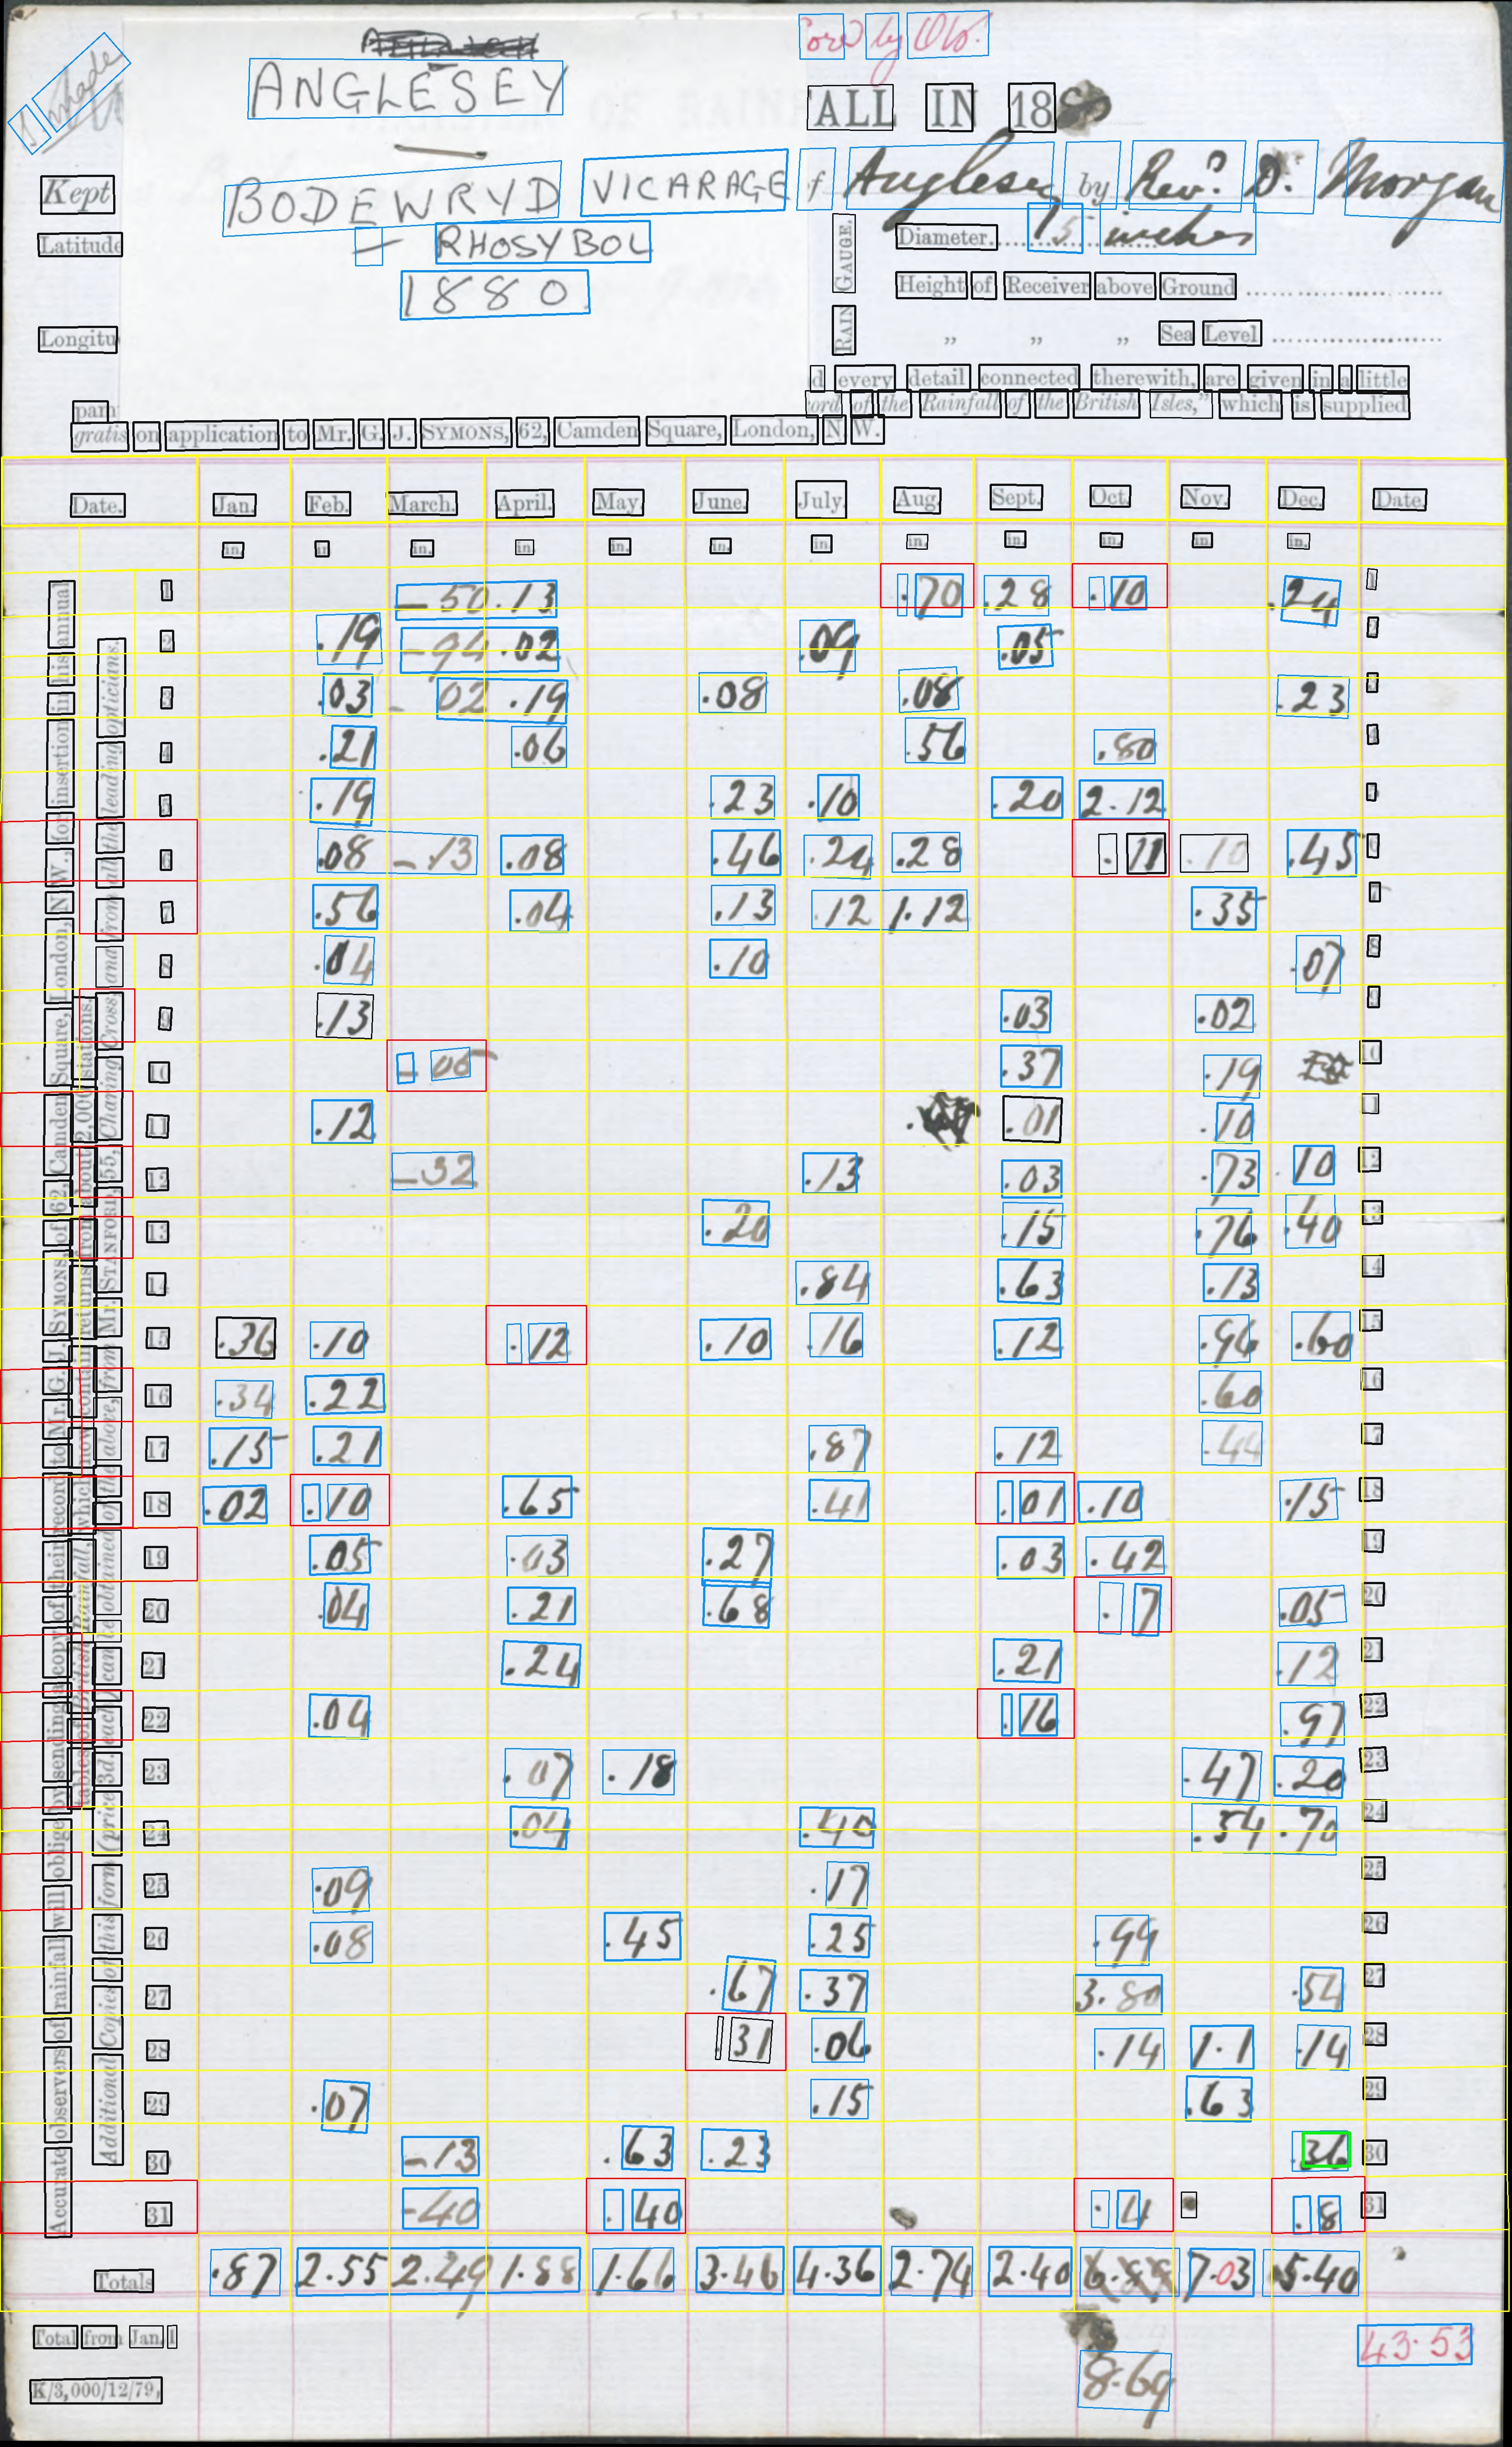 ANGLESEY
by
ALL IN 18
BODEWRYD VICARAGE
f Anglesey by Revd. D. Morgan
Kept
RHOSYBOL
1880
Latitude
Longitu
RAIN GAUGE.
Diameter..... 5 inches
Height of Receiver above Ground
„ „ „ Sea Level
d every detail connected therewith, are given in a little
pam ord of the Rainfall of the British Isles," which is supplied
gratis on application to Mr. G. J. SYMONS, 62, Camden Square, London, N.W.
Accurate observers of rainfall will oblige by sending a copy of their record to Mr. G. J. SYMONS, of 62, Camden Square, London, N.W., for insertion in his annual
tables of British Rainfall, which now contain returns from about 2,000 stations.
Additional Copies of this form (price 3d. each) can be obtained of the above, from Mr. STANFORD, 55, Charing Cross, and from all the leading opticians.
Date. Jan. Feb. March. April. May. June. July. Aug. Sept. Oct. Nov. Dec. Date.
in. in in. in. in. in. in. in. in. in. in in.
1 –50 .13 .70 .28 .10 .24 1
2 .19 –94 .02 .09 .05 2
3 .03 –02 .19 .08 .08 .23 3
4 .21 .06 .56 .80 4
5 .19 .23 .10 .20 2.12 5
6 .08 –.13 .08 .46 .24 .28 .11 .10 .45 6
7 .56 .04 .13 .12 1.12 .35 7
8 .04 .10 .07 8
9 .13 .03 .02 9
10 –06 .37 .19 10
11 .12 .01 .10 11
12 –32 .13 .03 .73 .10 12
13 .20 .15 .76 .40 13
14 .84 .63 .13 14
15 .36 .10 .12 .10 .16 .12 .94 .60 15
16 .34 .22 .60 16
17 .15 .21 .87 .12 .44 17
18 .02 .10 .65 .41 .01 .10 .15 18
19 .05 .03 .27 .03 .42 19
20 .04 .21 .68 .7 .05 20
21 .24 .21 .12 21
22 .04 .16 .97 22
23 .07 .18 .47 .20 23
24 .04 .40 .54 .70 24
25 .09 .17 25
26 .08 .45 .25 .99 26
27 .67 .37 3.80 .54 27
28 .31 .06 .14 1.1 .14 28
29 .07 .15 .63 29
30 –13 .63 .23 .36 30
31 –40 .40 .4 .8 31
Totals .87 2.55 2.49 1.88 1.66 3.46 4.36 2.74 2.40 7.03 5.40
Total from Jan. 1 43.53
8.69
K/3,000/12/79,